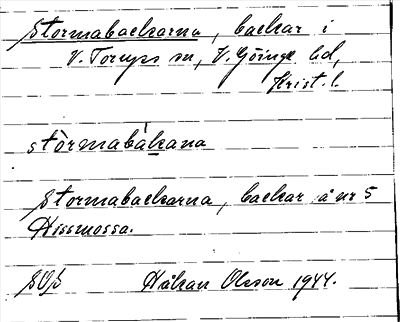 Stormabackarna, backar i
V. Torups sn, V. Göinge hd,
Krist. l.
stòrmabákana
Stormabackarna, backar å nr 5
Hissmossa.
SOS Håkan Olsson 1944.